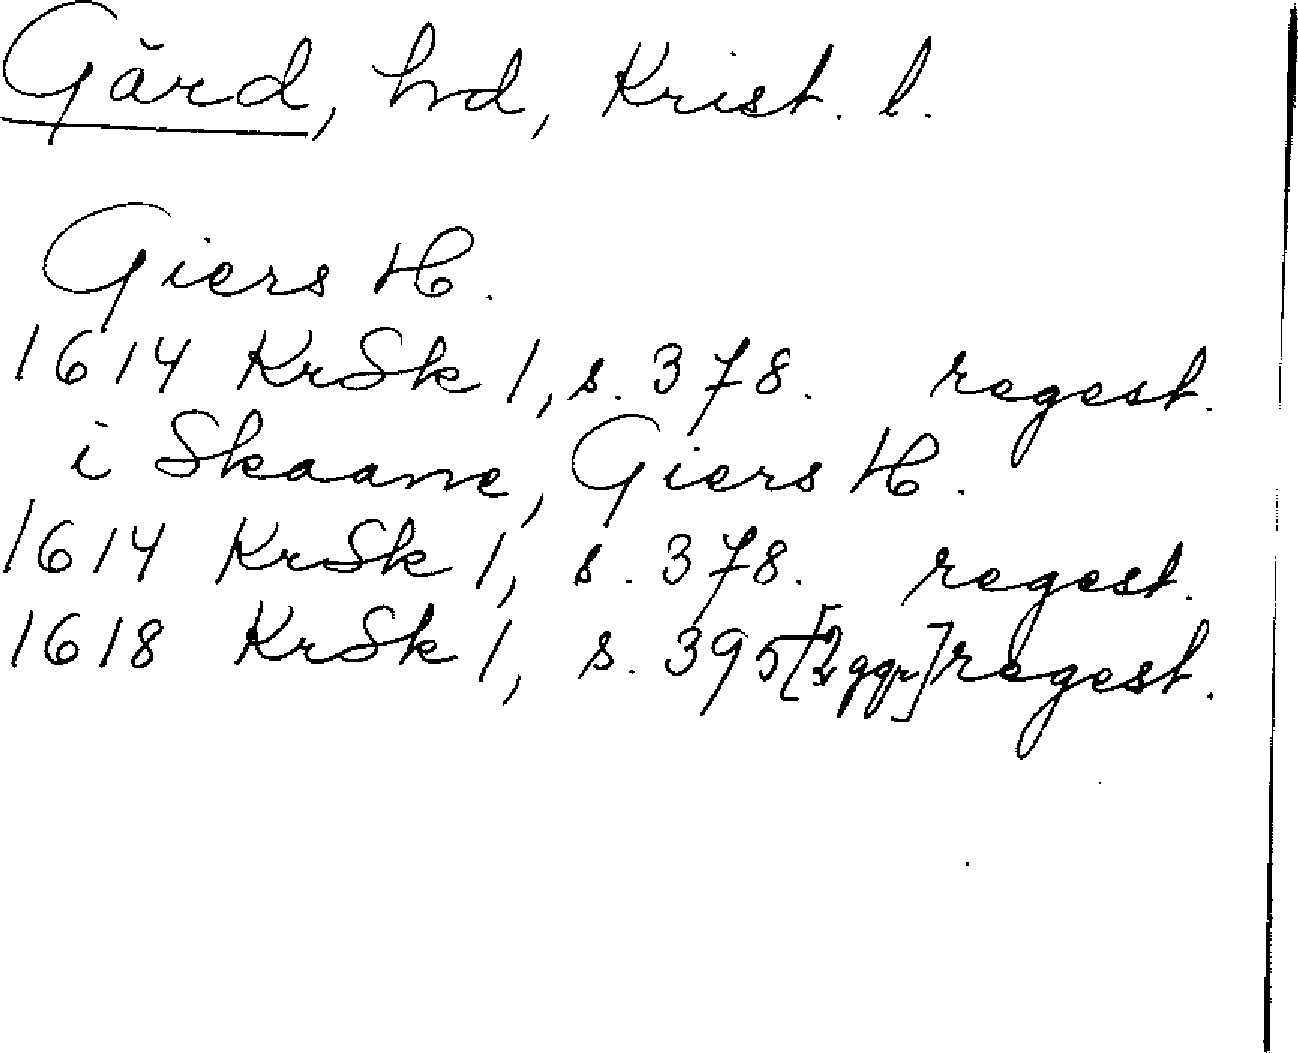 Gärd, hrd, Krist. l.
Giers H.
1614 KrSk 1, s. 378. regest.
i Skaane, Giers H.
1614 KrSk 1, s. 378. regest.
1618 KrSk 1, s. 395 [2 ggr] regest.